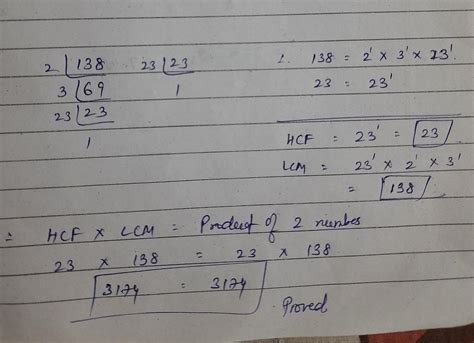 2 | 138   23 | 23
3 | 69   1
23 | 23
1
1. 138 = 2¹ × 3¹ × 23¹
23 = 23¹
HCF = 23¹ = 23
LCM = 23¹ × 2¹ × 3¹
= 138
∴ HCF × LCM = Product of 2 number
23 × 138 = 23 × 138
3174 = 3174
Proved